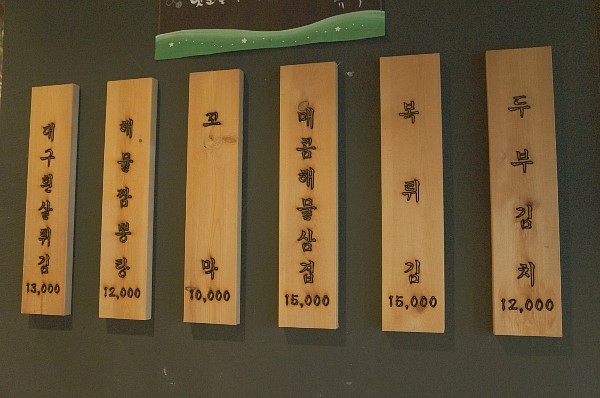 대구흰살튀김
13,000
해물짬뽕탕
12,000
꼬막
10,000
매콤해물삼겹
15,000
북튀김
15,000
두부김치
12,000